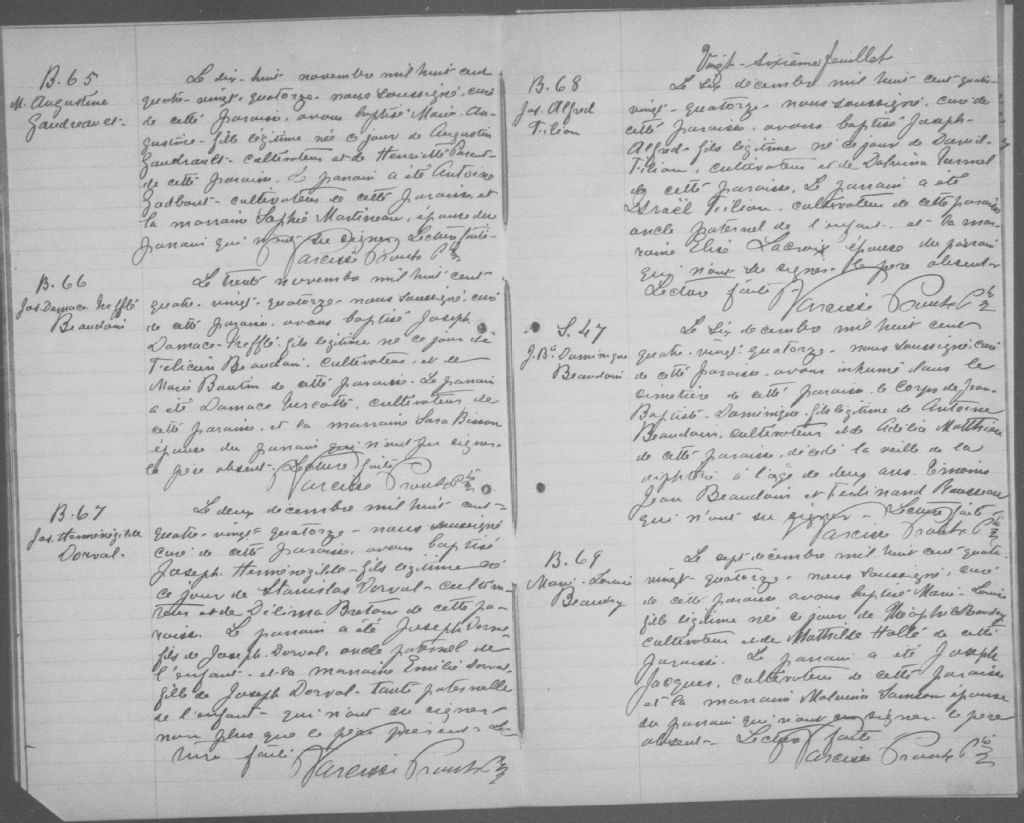 B. 65
M. Augustine
Gaudreault
Le dix-huit novembre mil huit cent
quatre-vingt-quatorze. nous soussigné, curé
de cette paroisse, avons baptisé Marie-Au-
gustine fille légitime née ce jour de Augustin
Gaudrault cultivateur et de Henriette Parent
de cette paroisse. Le parrain a été Antoine
Gadbout cultivateur de cette paroisse et
la marraine Sophie Martineau, épouse du
parrain qui n'ont su signer. Lecture faite
Narcisse Proulx Ptre
B. 66
Jos. Damace Trefflé
Beaudoin
Le trente novembre mil huit cent
quatre-vingt-quatorze. nous soussigné, curé
de cette paroisse, avons baptisé Joseph
Damace-Trefflé fils légitime né ce jour de
Félicien Beaudoin, cultivateur, et de
Marie Boutin de cette paroisse. Le parrain
a été Damace Turcotte, cultivateur de
cette paroisse, et la marraine Sara Bisson
épouse du parrain qui n'ont pu signer.
le père absent. Lecture faite
Narcisse Proulx Ptre
B. 67
Jos. Herménégilde
Dorval.
Le deux decembre mil huit cent
quatre-vingt-quatorze. nous soussigné
curé de cette paroisse avons baptisé
Joseph Herménégilde fils légitime né
ce jour de Stanislas Dorval cultiva-
teur et de Délima Breton de cette pa-
roisse. Le parrain a été Joseph Dorval
fils de Joseph Dorval, oncle paternel de
l'enfant et la marraine Emilie Dorval
fille de Joseph Dorval tante paternelle
de l'enfant qui n'ont su signer
non plus que le père présent. Lec-
ture faite
Narcisse Proulx Ptre
Vingt-sixième feuillet
B. 68
Jos. Alfred
Filion
Le six decembre mil huit cent quatre-
vingt-quatorze nous soussigné, curé de
cette paroisse, avons baptisé Joseph-
Alfred fils légitime né ce jour de David
Filion, cultivateur et de
de cette paroisse. Le parrain a été
Israël Filion, cultivateur de cette paroisse
oncle paternel de l'enfant et la mar-
raine Elise Lacroix épouse du parrain
qui n'ont su signer. le père absent
Lecture faite
Narcisse Proulx Ptre
S. 47
J. Bte. Dominique
Beaudoin
Le six decembre mil huit cent
quatre-vingt-quatorze nous soussigné, curé
de cette paroisse, avons inhumé dans le
cimetière de cette paroisse le corps de Jean-
Baptiste-Dominique fils légitime de Antoine
Beaudoin, cultivateur et de Adélie Matthieu
de cette paroisse, décédé la veille de la
diphterie à l'âge de deux ans. Témoins
Jean Beaudoin et Ferdinand Rousseau
qui n'ont su signer. Lecture faite
Narcisse Proulx Ptre
B. 69
Marie-Louise
Beaudry
Le sept décembre mil huit cent quatre-
vingt-quatorze, nous soussigné, curé
de cette paroisse avons baptisé Marie-Louise
fille légitime née ce jour de Théophile Beaudry
cultivateur et de Mathilde Hallé de cette
paroisse. Le parrain a été Joseph
Jacques, cultivateur de cette paroisse
et la marraine Malvina Samson épouse
du parrain qui n'ont su signer. le père
absent. Lecture faite
Narcisse Proulx Ptre